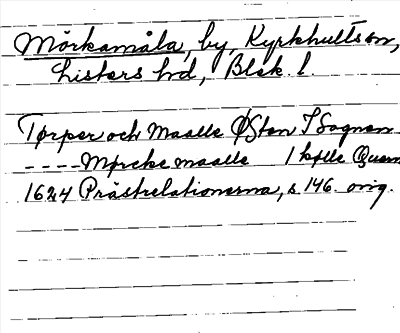 Mörkamåla, by, Kyrkhults sn,
Listers hd, Blek. l.
Tørper och Maalle Østen I Sognen
---- Mørcke maalle 1 kølle Quern
1624 Prästrelationerna, s. 146. orig.